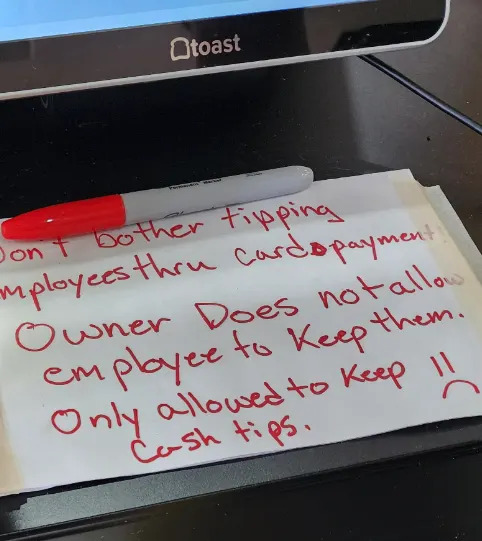 toast
Permanent Marker
Don't bother tipping
mployees thru card payment!
Owner Does not allow
employee to Keep them.
Only allowed to Keep
Cash tips.